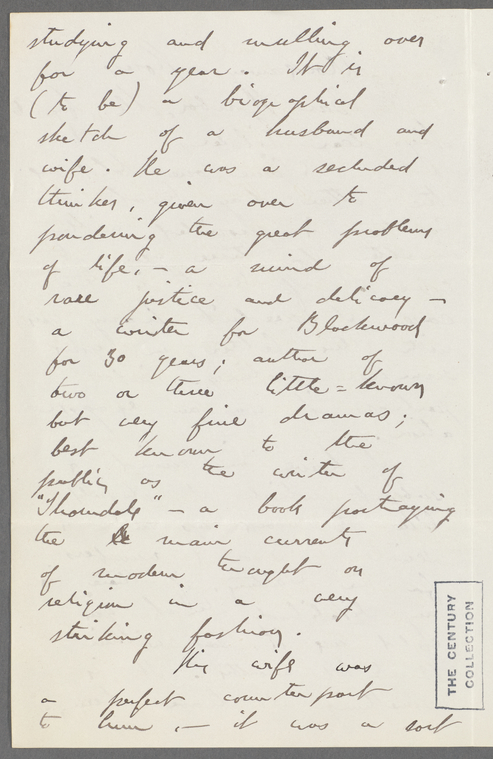 studying and mulling over
for a year. It is
(to be) a biographical
sketch of a husband and
wife. He was a secluded
thinker, given over to
pondering the great problems
of life, – a mind of
rare justice and delicacy –
a writer for Blackwood
for 30 years; author of
two or three little=known
but very fine dramas;
best known to the
public as the writer of
"Thorndale" – a book portraying
the main currents
of modern thought on
religion in a very
striking fashion.
His wife was
a perfect counterpart
to him, – it was a sort
THE CENTURY
COLLECTION